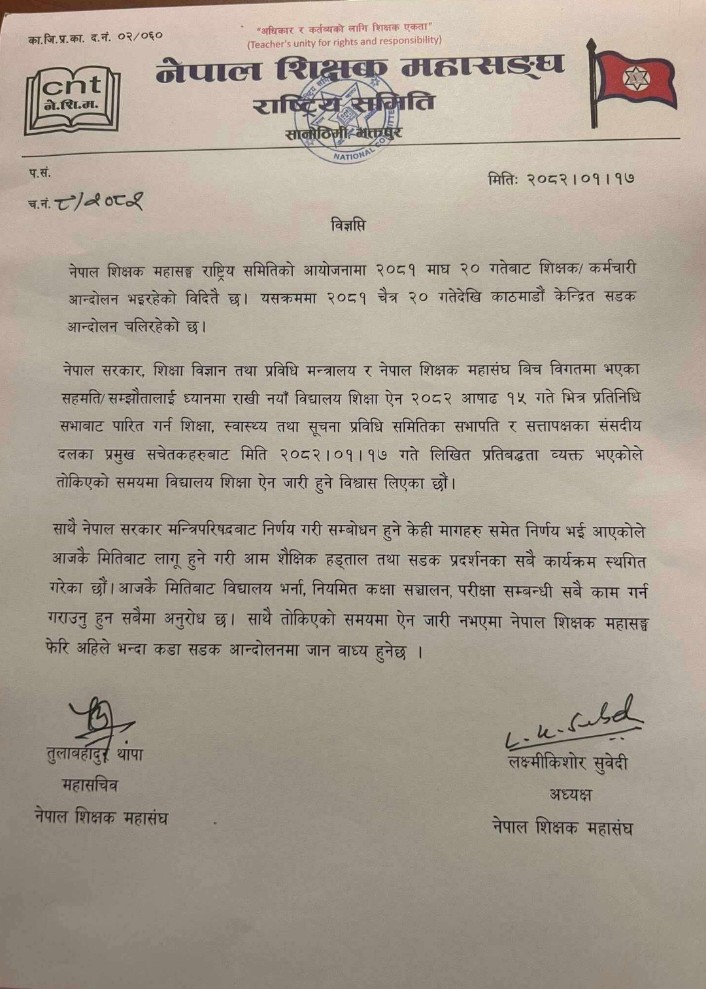 का.जि.प्र.का. द.नं. ०२/०६०
"अधिकार र कर्तव्यको लागि शिक्षक एकता"
(Teacher's unity for rights and responsibility)
cnt
ने.शि.म.
नेपाल शिक्षक महासङ्घ
राष्ट्रिय समिति
सानोठिमी, भक्तपुर
NATIONAL COMMITTEE
प.सं.
मितिः २०८२।०१।१७
च.नं. ८/२०८२
विज्ञप्ति
नेपाल शिक्षक महासङ्घ राष्ट्रिय समितिको आयोजनामा २०८१ माघ २० गतेबाट शिक्षक/ कर्मचारी
आन्दोलन भइरहेको विदितै छ। यसक्रममा २०८१ चैत्र २० गतेदेखि काठमाडौं केन्द्रित सडक
आन्दोलन चलिरहेको छ।
नेपाल सरकार, शिक्षा विज्ञान तथा प्रविधि मन्त्रालय र नेपाल शिक्षक महासंघ बिच विगतमा भएका
सहमति/सम्झौतालाई ध्यानमा राखी नयाँ विद्यालय शिक्षा ऐन २०८२ आषाढ १५ गते भित्र प्रतिनिधि
सभाबाट पारित गर्न शिक्षा, स्वास्थ्य तथा सूचना प्रविधि समितिका सभापति र सत्तापक्षका संसदीय
दलका प्रमुख सचेतकहरुबाट मिति २०८२।०१।१७ गते लिखित प्रतिबद्धता व्यक्त भएकोले
तोकिएको समयमा विद्यालय शिक्षा ऐन जारी हुने विश्वास लिएका छौं।
साथै नेपाल सरकार मन्त्रिपरिषदबाट निर्णय गरी सम्बोधन हुने केही मागहरु समेत निर्णय भई आएकोले
आजकै मितिबाट लागू हुने गरी आम शैक्षिक हड्ताल तथा सडक प्रदर्शनका सबै कार्यक्रम स्थगित
गरेका छौं। आजकै मितिबाट विद्यालय भर्ना, नियमित कक्षा सञ्चालन, परीक्षा सम्बन्धी सबै काम गर्न
गराउनु हुन सबैमा अनुरोध छ। साथै तोकिएको समयमा ऐन जारी नभएमा नेपाल शिक्षक महासङ्घ
फेरि अहिले भन्दा कडा सडक आन्दोलनमा जान वाध्य हुनेछ ।
तुलाबहादुर थापा
महासचिव
नेपाल शिक्षक महासंघ
लक्ष्मीकिशोर सुवेदी
अध्यक्ष
नेपाल शिक्षक महासंघ